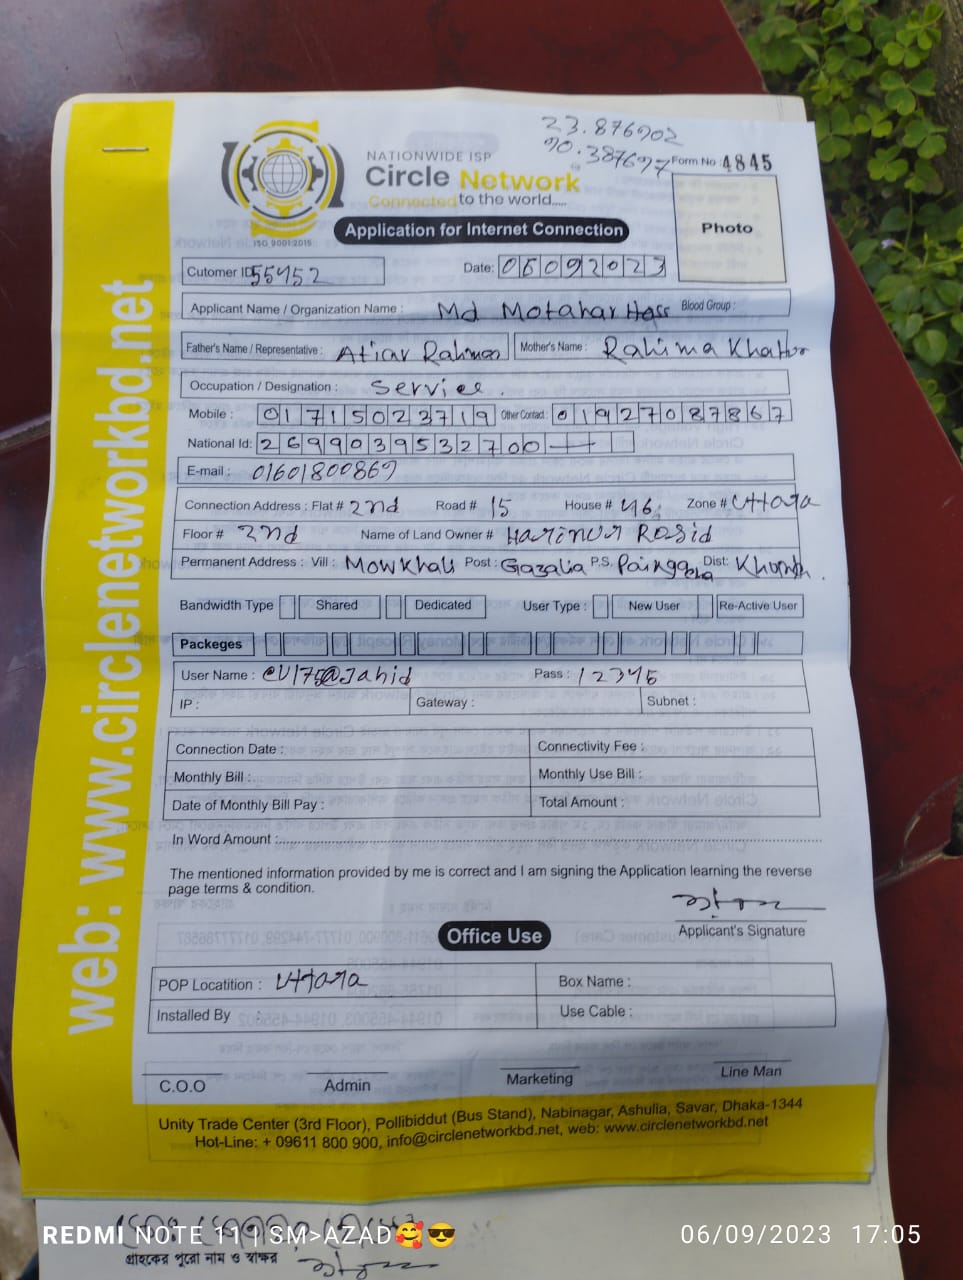 23.876902
90.387697
NATIONWIDE ISP
Circle Network
Connected to the world.....
ISO 9001:2015
Form No : 4845
Photo
Application for Internet Connection
Cutomer ID 55452
Date: 06092023
Applicant Name / Organization Name : Md Motahar Hoss Blood Group :
Father's Name / Representative : Atiar Rahman Mother's Name : Rahima Khatun
Occupation / Designation : Service.
Mobile : 01715023719 Other Contact : 01927087867
National Id: 2699039532700
E-mail : 01601800869
Connection Address : Flat # 2nd Road # 15 House # 46 Zone # Uttara
Floor # 2nd Name of Land Owner # Harinur Rasid
Permanent Address : Vill : Mowkhali Post : Gazalia P.S. Paingacha Dist:
Bandwidth Type Shared Dedicated User Type : New User Re-Active User
Packeges
User Name : Pass : 12345
IP : Gateway : Subnet :
Connection Date : Connectivity Fee :
Monthly Bill : Monthly Use Bill :
Date of Monthly Bill Pay : Total Amount :
In Word Amount :
The mentioned information provided by me is correct and I am signing the Application learning the reverse
page terms & condition.
Applicant's Signature
Office Use
POP Locatition : Uttara Box Name :
Installed By : Use Cable :
C.O.O Admin Marketing Line Man
Unity Trade Center (3rd Floor), Pollibiddut (Bus Stand), Nabinagar, Ashulia, Savar, Dhaka-1344
Hot-Line: + 09611 800 900, info@circlenetworkbd.net, web: www.circlenetworkbd.net
web: www.circlenetworkbd.net
গ্রাহকের পুরো নাম ও স্বাক্ষর
REDMI NOTE 11 | SM>AZAD🥰😎
06/09/2023 17:05